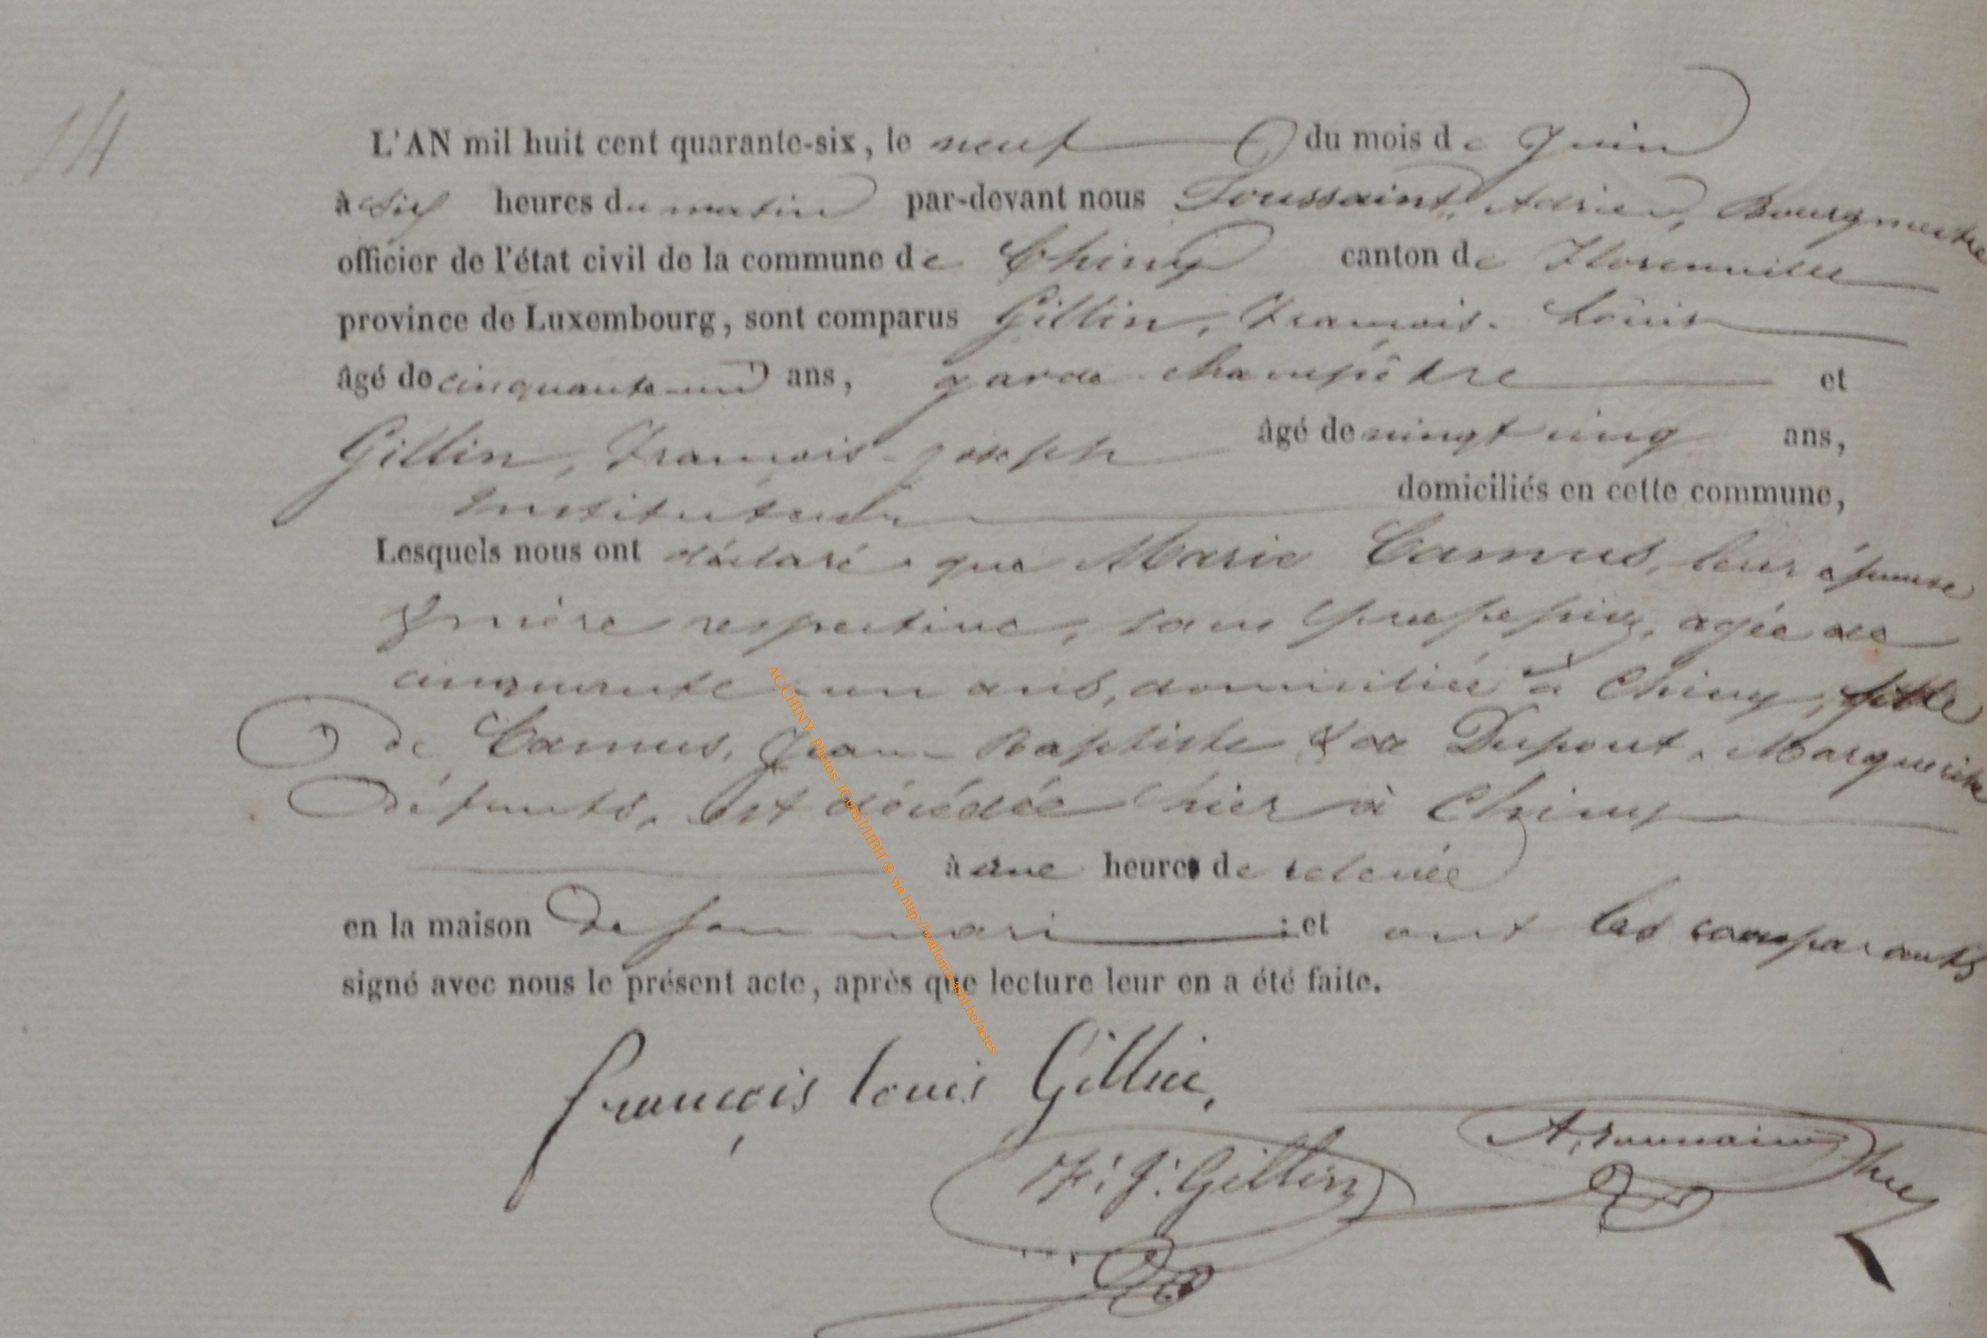 14
L'AN mil huit cent quarante-six, le neuf du mois de Juin
à six heures du matin par-devant nous Toussaint, Adrien, Bourgmestre
officier de l'état civil de la commune de Chiny canton de Florenville
province de Luxembourg, sont comparus Gillin, François-Louis
âgé de cinquante-un ans, garde champêtre et
Gillin, François-joseph âgé de vingt cinq ans,
instituteur domiciliés en cette commune,
Lesquels nous ont déclaré que Marie Camus, leur épouse
& mère respective, sans profession, agée de
cinquante-un ans, domiciliée à Chiny, fille
de Camus, Jean-Baptiste & de Dupont, Marguerite
défunts, est décédée hier à Chiny
à une heure de relevée
en la maison de son mari ; et ont les comparants
signé avec nous le présent acte, après que lecture leur en a été faite.
françois louis Gillin,
F. J. Gillin
A. Toussaint
ACCHINY Photos
via http://